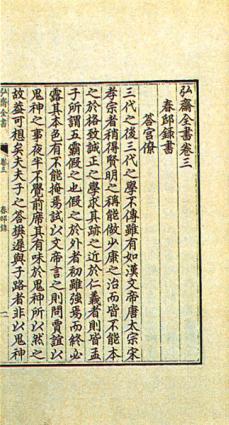 弘齋全書卷三
春邸錄書
答宮僚
三代之後三代之學不傳雖有如漢文帝唐太宗宋
孝宗者稍得賢明之稱能做少康之治而皆不能本
之於格致誠正之學求其跡之近於仁義者則皆孟
子所謂五霸假之也假之於外者初雖強焉而終必
露其本色有不能掩焉試以文帝言之則問賈誼以
鬼神之事夜半不覺前席其有味於鬼神所以然之
故益可想矣夫夫子之答樊遲與子路者非以鬼神
弘齋全書
卷三
春邸錄
一